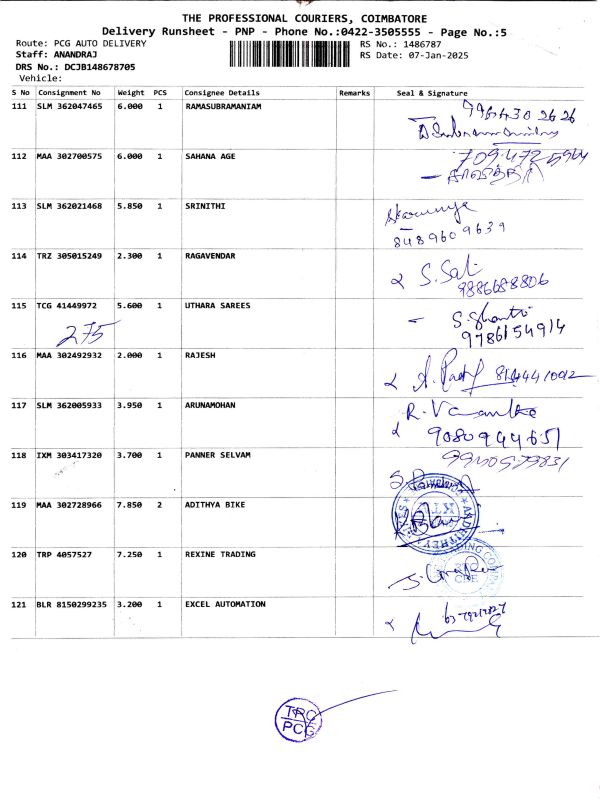 THE PROFESSIONAL COURIERS, COIMBATORE
Delivery Runsheet - PNP - Phone No.:0422-3505555 - Page No.:5
Route: PCG AUTO DELIVERY
RS No.: 1486787
Staff: ANANDRAJ
RS Date: 07-Jan-2025
DRS No.: DCJB148678705
Vehicle:
S No Consignment No Weight PCS Consignee Details Remarks Seal & Signature
111 SLM 362047465 6.000 1 RAMASUBRAMANIAM
112 MAA 302700575 6.000 1 SAHANA AGE
113 SLM 362021468 5.850 1 SRINITHI
8489609639
114 TRZ 305015249 2.300 1 RAGAVENDAR
S. Sat
9886688806
115 TCG 41449972 5.600 1 UTHARA SAREES
275
S. Shanti
9786154914
116 MAA 302492932 2.000 1 RAJESH
117 SLM 362005933 3.950 1 ARUNAMOHAN
9080944651
118 IXM 303417320 3.700 1 PANNER SELVAM
119 MAA 302728966 7.850 2 ADITHYA BIKE
120 TRP 4057527 7.250 1 REXINE TRADING
121 BLR 8150299235 3.200 1 EXCEL AUTOMATION
TRC
PCG